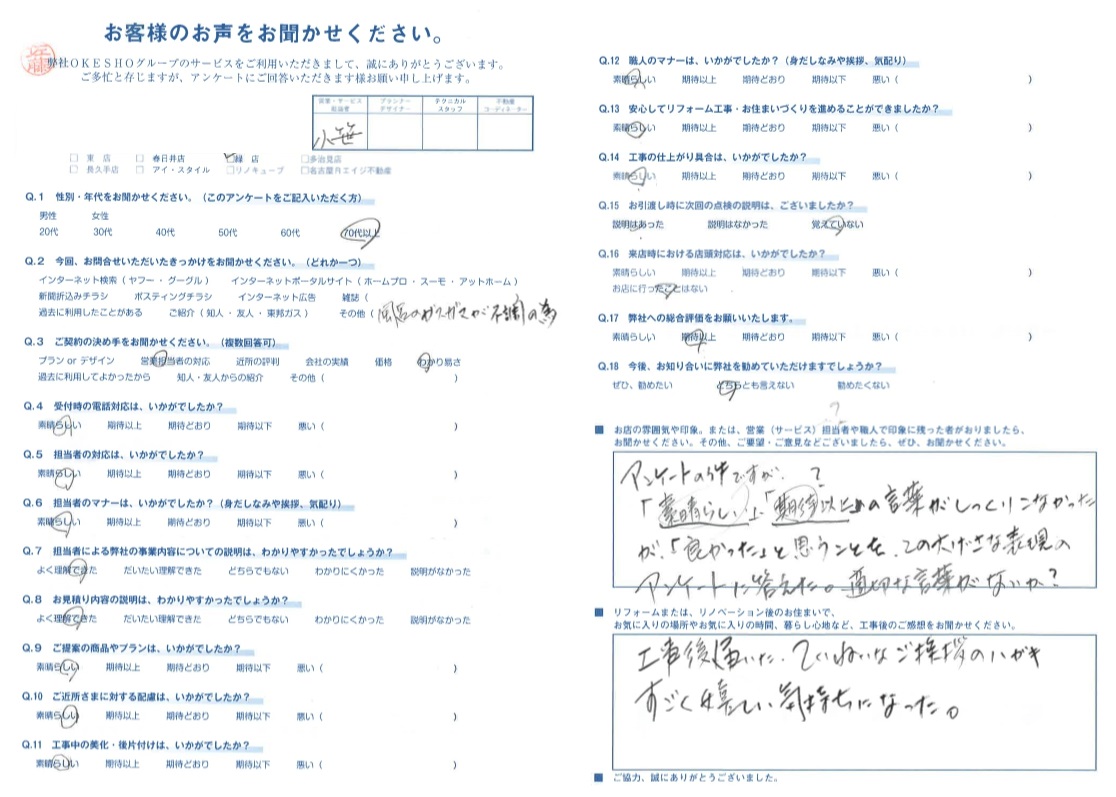 お客様のお声をお聞かせください。
弊社OKESHOグループのサービスをご利用いただきまして、誠にありがとうございます。
ご多忙と存じますが、アンケートにご回答いただきます様お願い申し上げます。
営業・サービス担当者 プランナーデザイナー テクニカルスタッフ 不動産コーディネーター
小笹
□ 東 店 □ 春日井店 □緑 店 □多治見店
□ 長久手店 □ アイ・スタイル □リノキューブ □名古屋南エイジ不動産
Q.1 性別・年代をお聞かせください。（このアンケートをご記入いただく方）
男性 女性
20代 30代 40代 50代 60代 70代以上
Q.2 今回、お問合せいただいたきっかけをお聞かせください。（どれか一つ）
インターネット検索（ ヤフー ・ グーグル ） インターネットポータルサイト（ ホームプロ ・ スーモ ・ アットホーム ）
新聞折込みチラシ ポスティングチラシ インターネット広告 雑誌（
過去に利用したことがある ご紹介（ 知人 ・ 友人 ・ 東邦ガス ） その他（ 風呂のガスガマが不調の為
Q.3 ご契約の決め手をお聞かせください。（複数回答可）
プラン or デザイン 営業担当者の対応 近所の評判 会社の実績 価格 わかり易さ
過去に利用してよかったから 知人・友人からの紹介 その他（ ）
Q.4 受付時の電話対応は、いかがでしたか？
素晴らしい 期待以上 期待どおり 期待以下 悪い（ ）
Q.5 担当者の対応は、いかがでしたか？
素晴らしい 期待以上 期待どおり 期待以下 悪い（ ）
Q.6 担当者のマナーは、いかがでしたか？（身だしなみや挨拶、気配り）
素晴らしい 期待以上 期待どおり 期待以下 悪い（ ）
Q.7 担当者による弊社の事業内容についての説明は、わかりやすかったでしょうか？
よく理解できた だいたい理解できた どちらでもない わかりにくかった 説明がなかった
Q.8 お見積り内容の説明は、わかりやすかったでしょうか？
よく理解できた だいたい理解できた どちらでもない わかりにくかった 説明がなかった
Q.9 ご提案の商品やプランは、いかがでしたか？
素晴らしい 期待以上 期待どおり 期待以下 悪い（ ）
Q.10 ご近所さまに対する配慮は、いかがでしたか？
素晴らしい 期待以上 期待どおり 期待以下 悪い（ ）
Q.11 工事中の美化・後片付けは、いかがでしたか？
素晴らしい 期待以上 期待どおり 期待以下 悪い（ ）
Q.12 職人のマナーは、いかがでしたか？（身だしなみや挨拶、気配り）
素晴らしい 期待以上 期待どおり 期待以下 悪い（ ）
Q.13 安心してリフォーム工事・お住まいづくりを進めることができましたか？
素晴らしい 期待以上 期待どおり 期待以下 悪い（ ）
Q.14 工事の仕上がり具合は、いかがでしたか？
素晴らしい 期待以上 期待どおり 期待以下 悪い（ ）
Q.15 お引渡し時に次回の点検の説明は、ございましたか？
説明はあった 説明はなかった 覚えていない
Q.16 来店時における店頭対応は、いかがでしたか？
素晴らしい 期待以上 期待どおり 期待以下 悪い（ ）
お店に行ったことはない
Q.17 弊社への総合評価をお願いいたします。
素晴らしい 期待以上 期待どおり 期待以下 悪い（ ）
Q.18 今後、お知り合いに弊社を勧めていただけますでしょうか？
ぜひ、勧めたい どちらとも言えない 勧めたくない
?
■ お店の雰囲気や印象。または、営業（サービス）担当者や職人で印象に残った者がおりましたら、
お聞かせください。その他、ご要望・ご意見などございましたら、ぜひ、お聞かせください。
アンケートの件ですが、?
「素晴らしい」「期待以上」の言葉がしっくりこなかった
が、「良かった」と思うことを、この大げさな表現の
アンケートに答えた。適切な言葉がないか？
■ リフォームまたは、リノベーション後のお住まいで、
お気に入りの場所やお気に入りの時間、暮らし心地など、工事後のご感想をお聞かせください。
工事後届いた、ていねいなご挨拶のハガキ
すごく嬉しい気持ちになった。
■ ご協力、誠にありがとうございました。